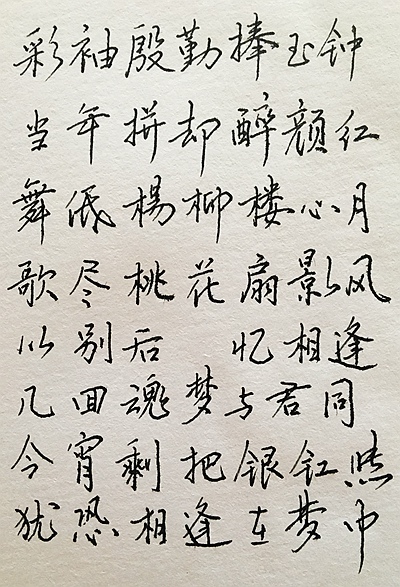 彩袖殷勤捧玉钟
当年拼却醉颜红
舞低楊柳楼心月
歌尽桃花扇影风
从别后 忆相逢
几回魂梦与君同
今宵剩把银釭照
犹恐相逢在梦中